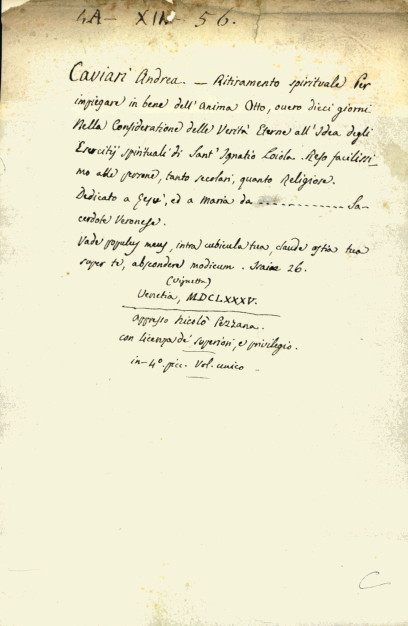 4A - XIII - 56.
Caviari Andrea. — Ritiramento spirituale Per
impiegare in bene dell'Anima Otto, overo dieci giorni
Nella Consideratione delle Verità Eterne all'Idea degli
Esercitij Spirituali di Sant' Ignatio Loiola. Reso facilissi-
mo alle persone, tanto secolari, quanto Religiose.
Dedicato a Gesù, ed a Maria da ............... Sa-
cerdote Veronese.
Vade populus meus, intra cubicula tua, claude ostia tua
super te, abscondere modicum. Isaiæ 26.
(Vignetta)
Venetia, MDCLXXXV.
appresso Nicolò Pezzana.
con licenza de' superiori, e privilegio.
in-4º. picc. Vol. unico —
C